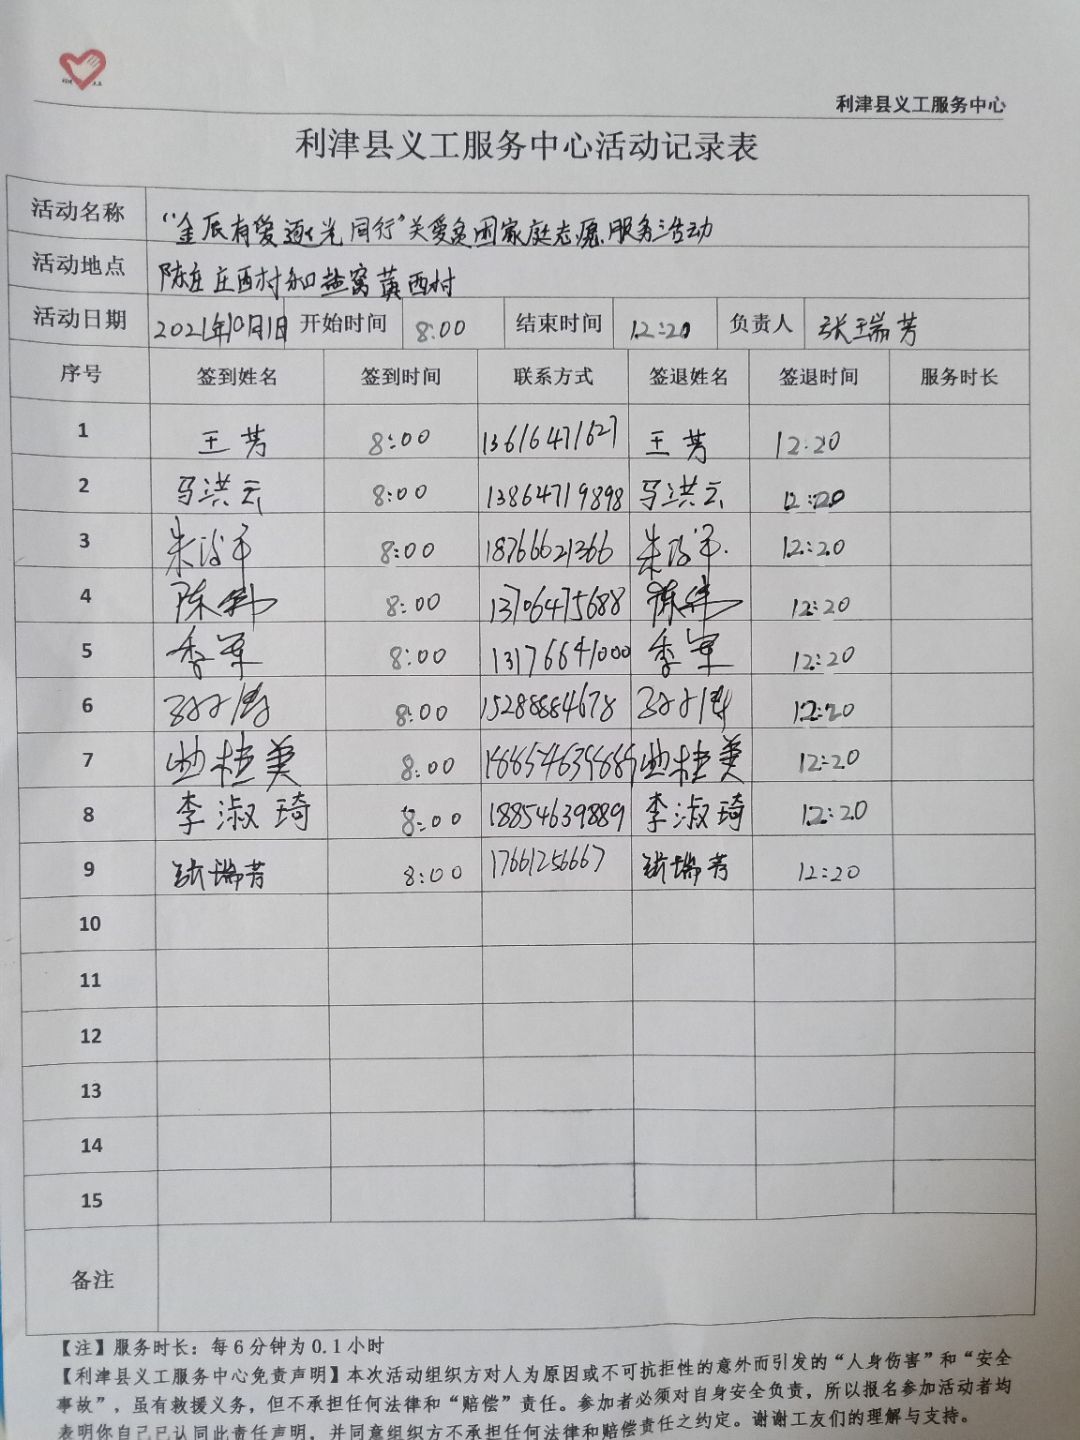 利津县义工服务中心
利津县义工服务中心活动记录表
活动名称 “金辰有爱逐光同行”关爱贫困家庭志愿服务活动
活动地点 陈庄庄西村和盐窝黄西村
活动日期 2021年10月1日 开始时间 8:00 结束时间 12:20 负责人 张瑞芳
序号 签到姓名 签到时间 联系方式 签退姓名 签退时间 服务时长
1 王芳 8:00 13616471627 王芳 12:20
2 马洪云 8:00 13864719898 马洪云 12:20
3 朱 8:00 18766621366 朱 12:20
4 陈伟 8:00 13706475688 陈伟 12:20
5 季军 8:00 13176641000 季军 12:20
6 8:00 15288884678 12:20
7 桂美 8:00 桂美 12:20
8 李淑琦 8:00 18854639889 李淑琦 12:20
9 张瑞芳 8:00 17661256667 张瑞芳 12:20
10
11
12
13
14
15
备注
【注】服务时长：每6分钟为0.1小时
【利津县义工服务中心免责声明】本次活动组织方对人为原因或不可抗拒性的意外而引发的“人身伤害”和“安全
事故”，虽有救援义务，但不承担任何法律和“赔偿”责任。参加者必须对自身安全负责，所以报名参加活动者均
表明你自己已认同此责任声明，并同意组织方不承担任何法律和赔偿责任之约定。谢谢工友们的理解与支持。